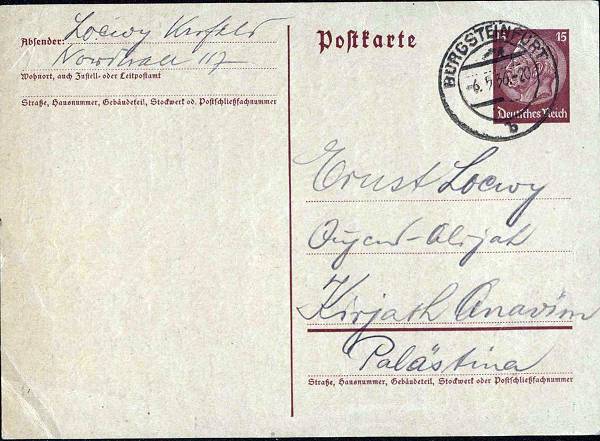 Absender: Loewy Krefeld
Nordstraße 117
Wohnort, auch Zustell- oder Leitpostamt
Straße, Hausnummer, Gebäudeteil, Stockwerk od. Postschließfachnummer
Postkarte
BURGSTEINFURT
-6.5.36.-20
b
15
Deutsches Reich
Ernst Loewy
Jugend-Alijah
Kirjath Anavim
Palästina
Straße, Hausnummer, Gebäudeteil, Stockwerk oder Postschließfachnummer